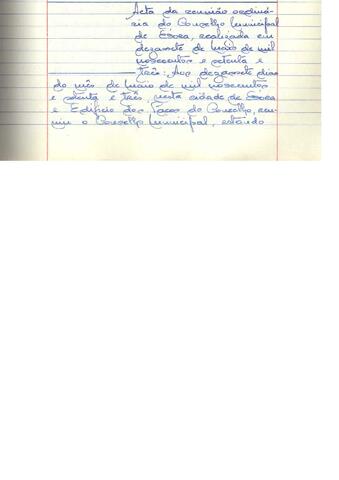 Acta da reunião ordiná-
ria do Conselho Municipal
de Évora, realizada em
dezassete de Maio de mil
novecentos e setenta e
três: Aos dezassete dias
do mês de Maio de mil novecentos
e setenta e três, nesta cidade de Évora
e Edifício dos Paços do Concelho, reu-
niu o Conselho Municipal, estando